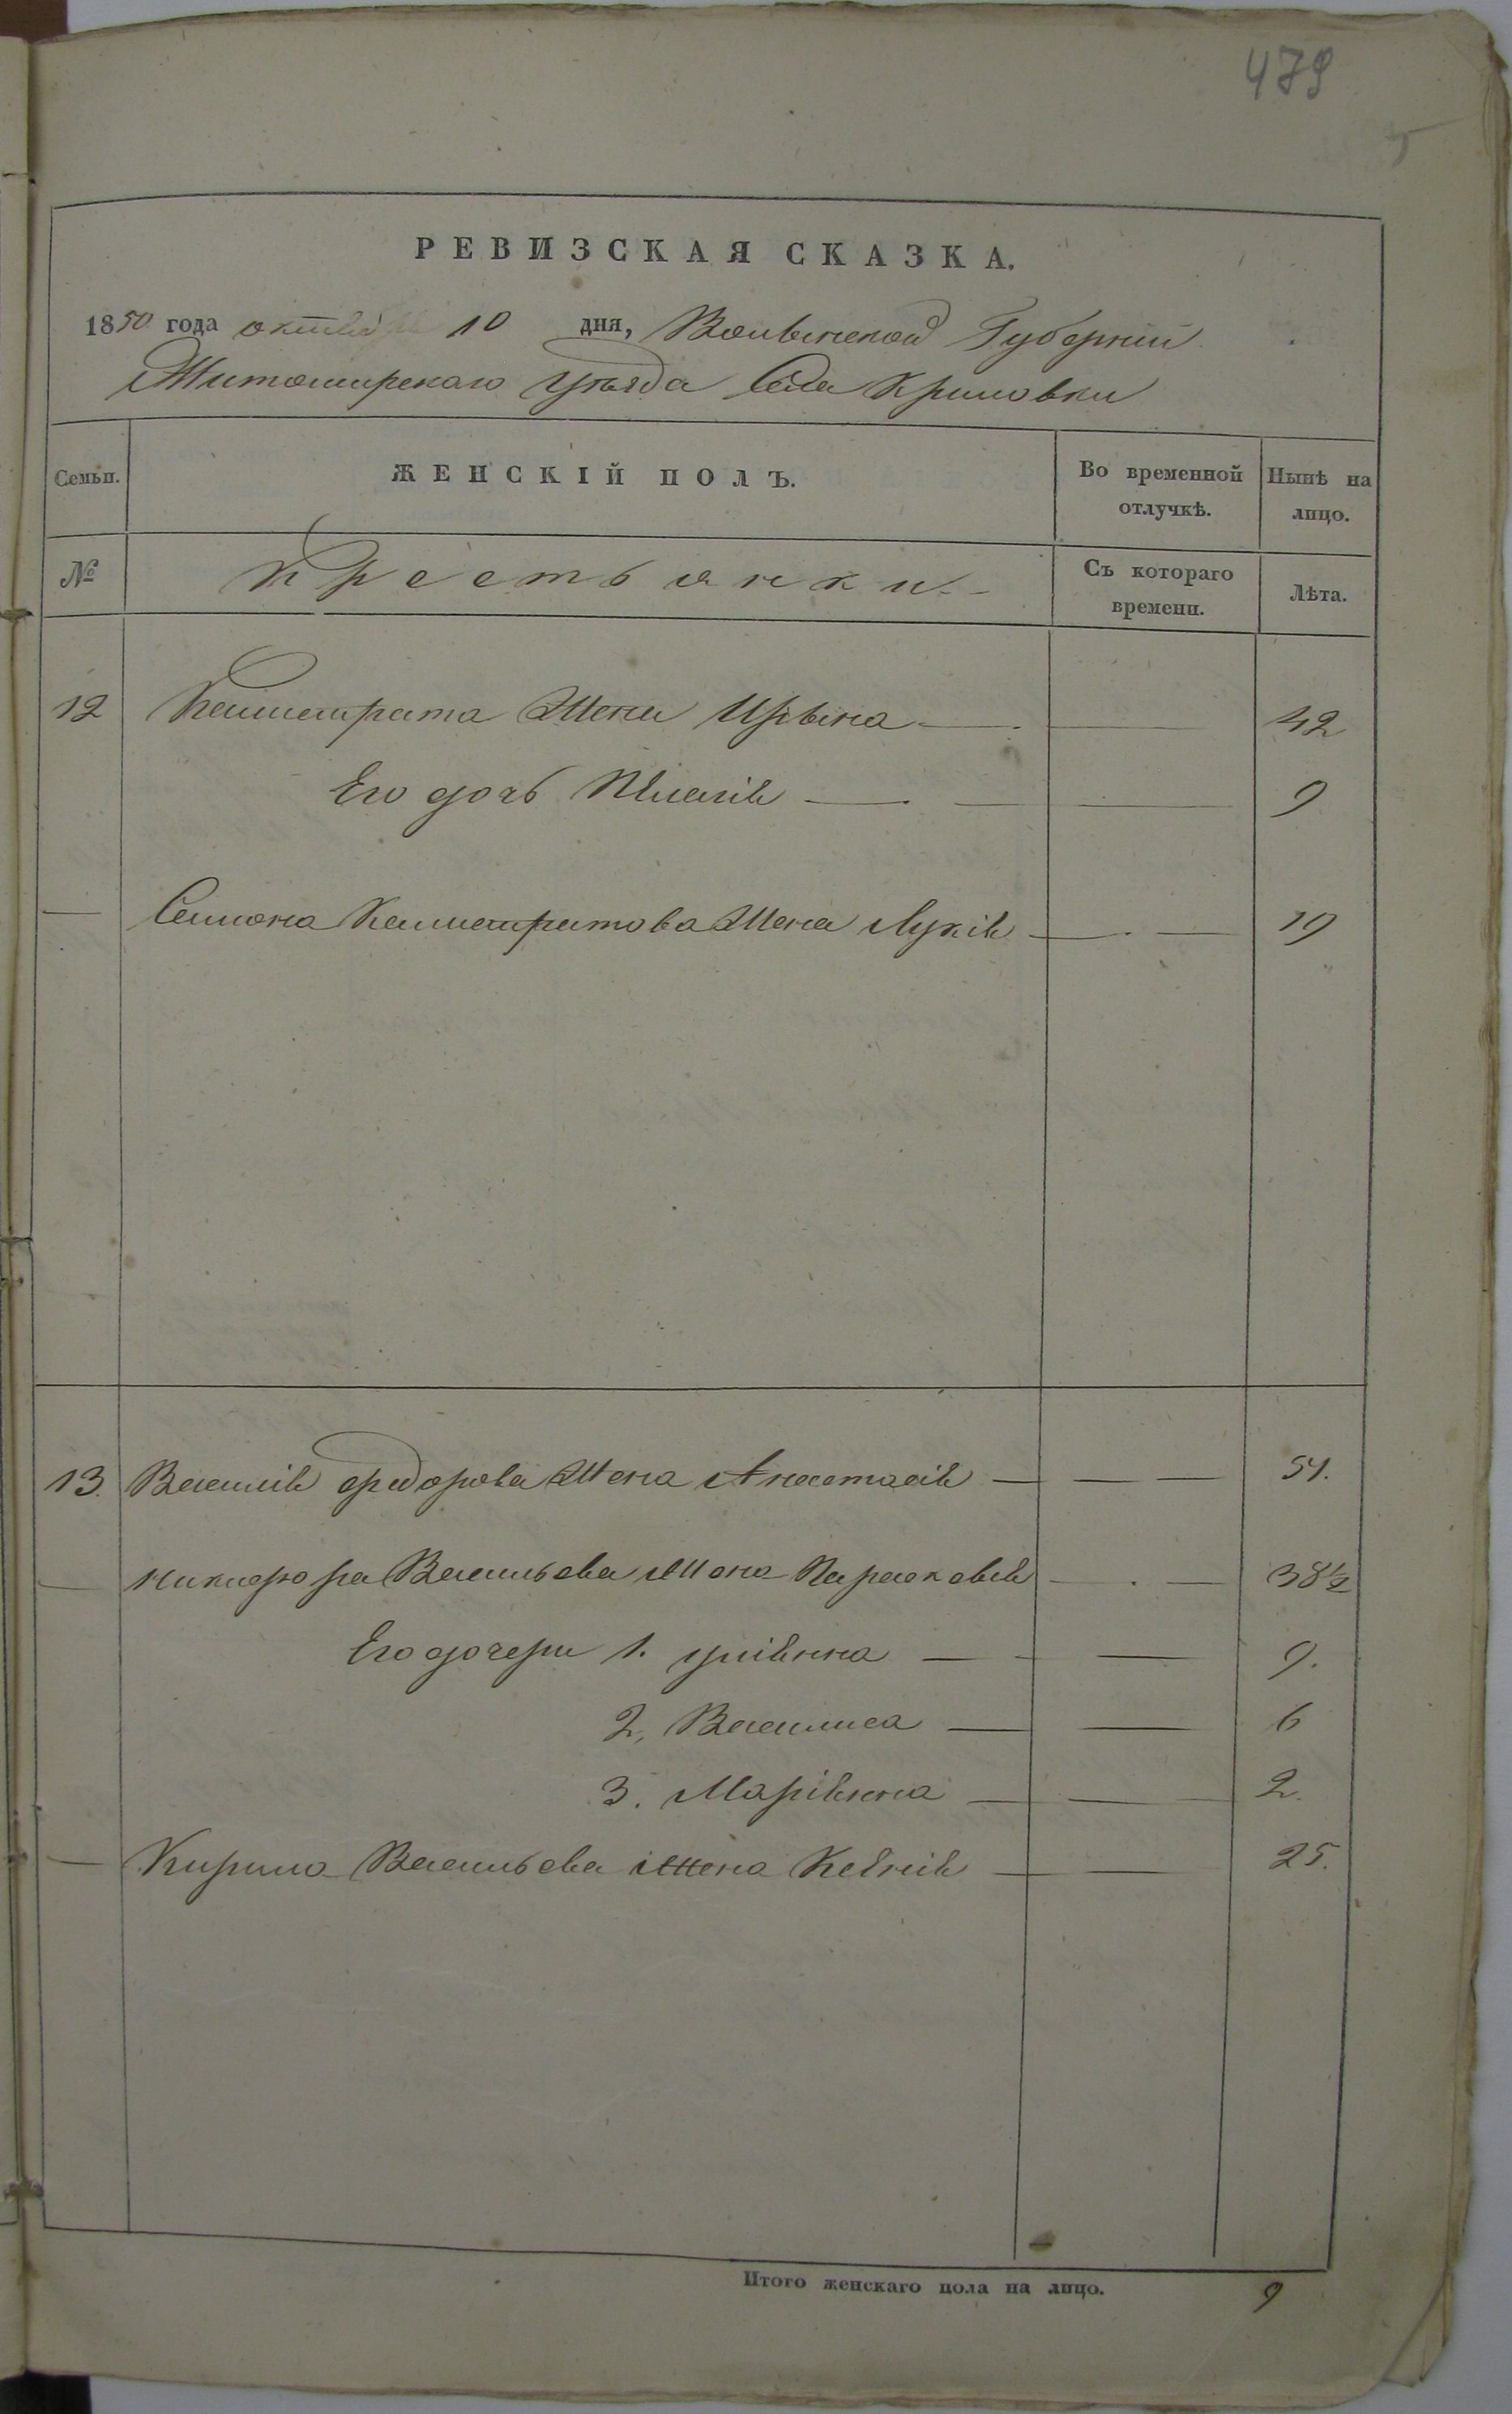 479
РЕВИЗСКАЯ СКАЗКА.
1850 года октября 10 дня, Волынской Губернии
Житомирскаго Уѣзда Села Криловки
Семьи.
ЖЕНСКІЙ ПОЛЪ.
Во временной
отлучкѣ.
Нынѣ на
лицо.
№
Крестьянки
Съ котораго
времени.
Лѣта.
12 Калистрата Жена Ирына — — 42
Его дочь — — 9
— Семиона Калистратова Жена Лукія — — 19
13. Василія Федорова Жена Анастасія — — 51.
— Никифора Васильева Жена Парасковія — — 38½
Его дочери 1. уліянна — — 9.
2, Василиса — — 6
3. Маріянна — — 2.
— Кирила Васильева Жена — — 25.
Итого женскаго пола на лицо. 9